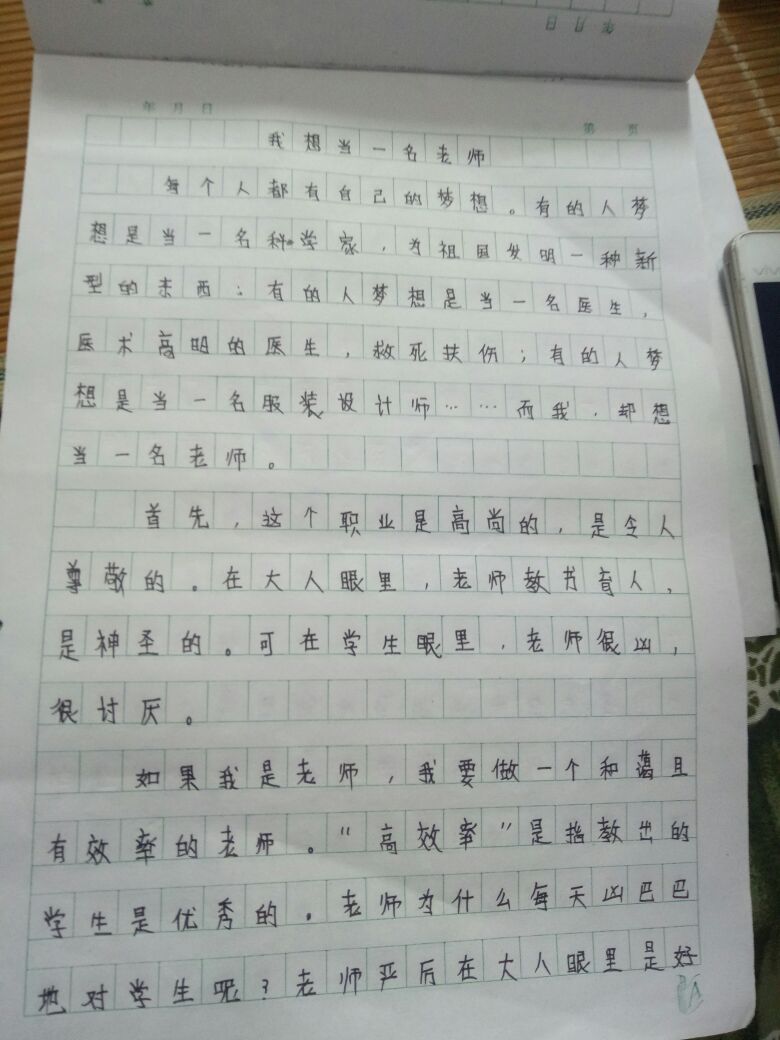 年 月 日
第 页
我想当一名老师
每个人都有自己的梦想。有的人梦
想是当一名科学家，为祖国发明一种新
型的东西；有的人梦想是当一名医生，
医术高明的医生，救死扶伤；有的人梦
想是当一名服装设计师……而我，却想
当一名老师。
首先，这个职业是高尚的，是令人
尊敬的。在大人眼里，老师教书育人，
是神圣的。可在学生眼里，老师很凶，
很讨厌。
如果我是老师，我要做一个和蔼且
有效率的老师。“高效率”是指教出的
学生是优秀的。老师为什么每天凶巴巴
地对学生呢？老师严厉在大人眼里是好
vivo